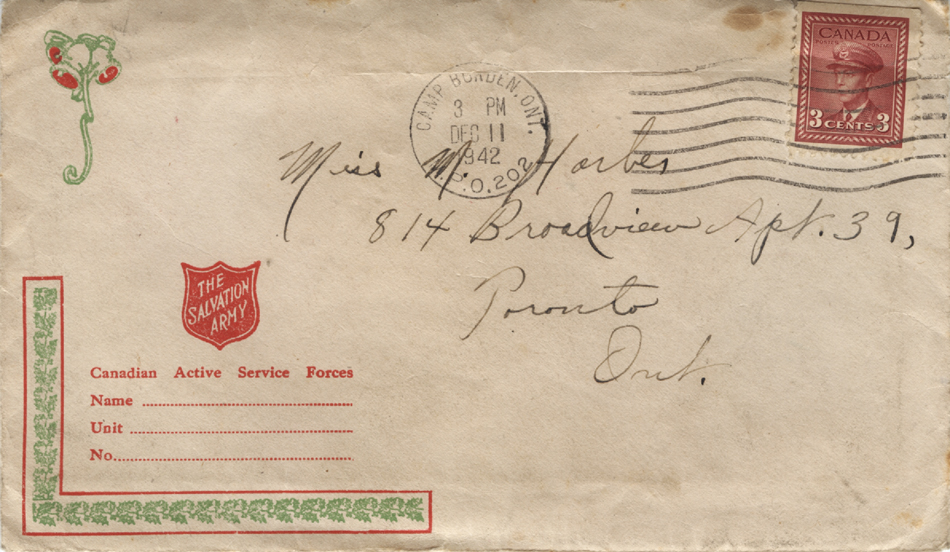 CANADA
POSTES POSTAGE
3 CENTS 3
CAMP BORDEN, ONT.
3 PM
DEC 11
1942
P.O. 202
Miss M. Forbes
814 Broadview Apt. 39,
Toronto
Ont.
THE
SALVATION
ARMY
Canadian Active Service Forces
Name
Unit
No.